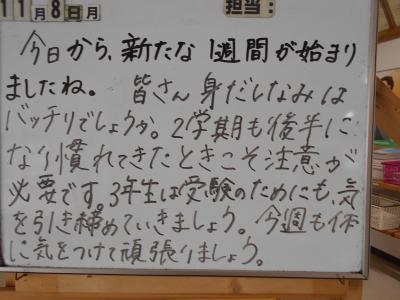 11月8日月 担当:
今日から、新たな1週間が始まり
ましたね。 皆さん身だしなみは
バッチリでしょうか。2学期も後半に
なり慣れてきたときこそ注意が
必要です。3年生は受験のためにも、気
を引き締めていきましょう。今週も体
に気をつけて頑張りましょう。